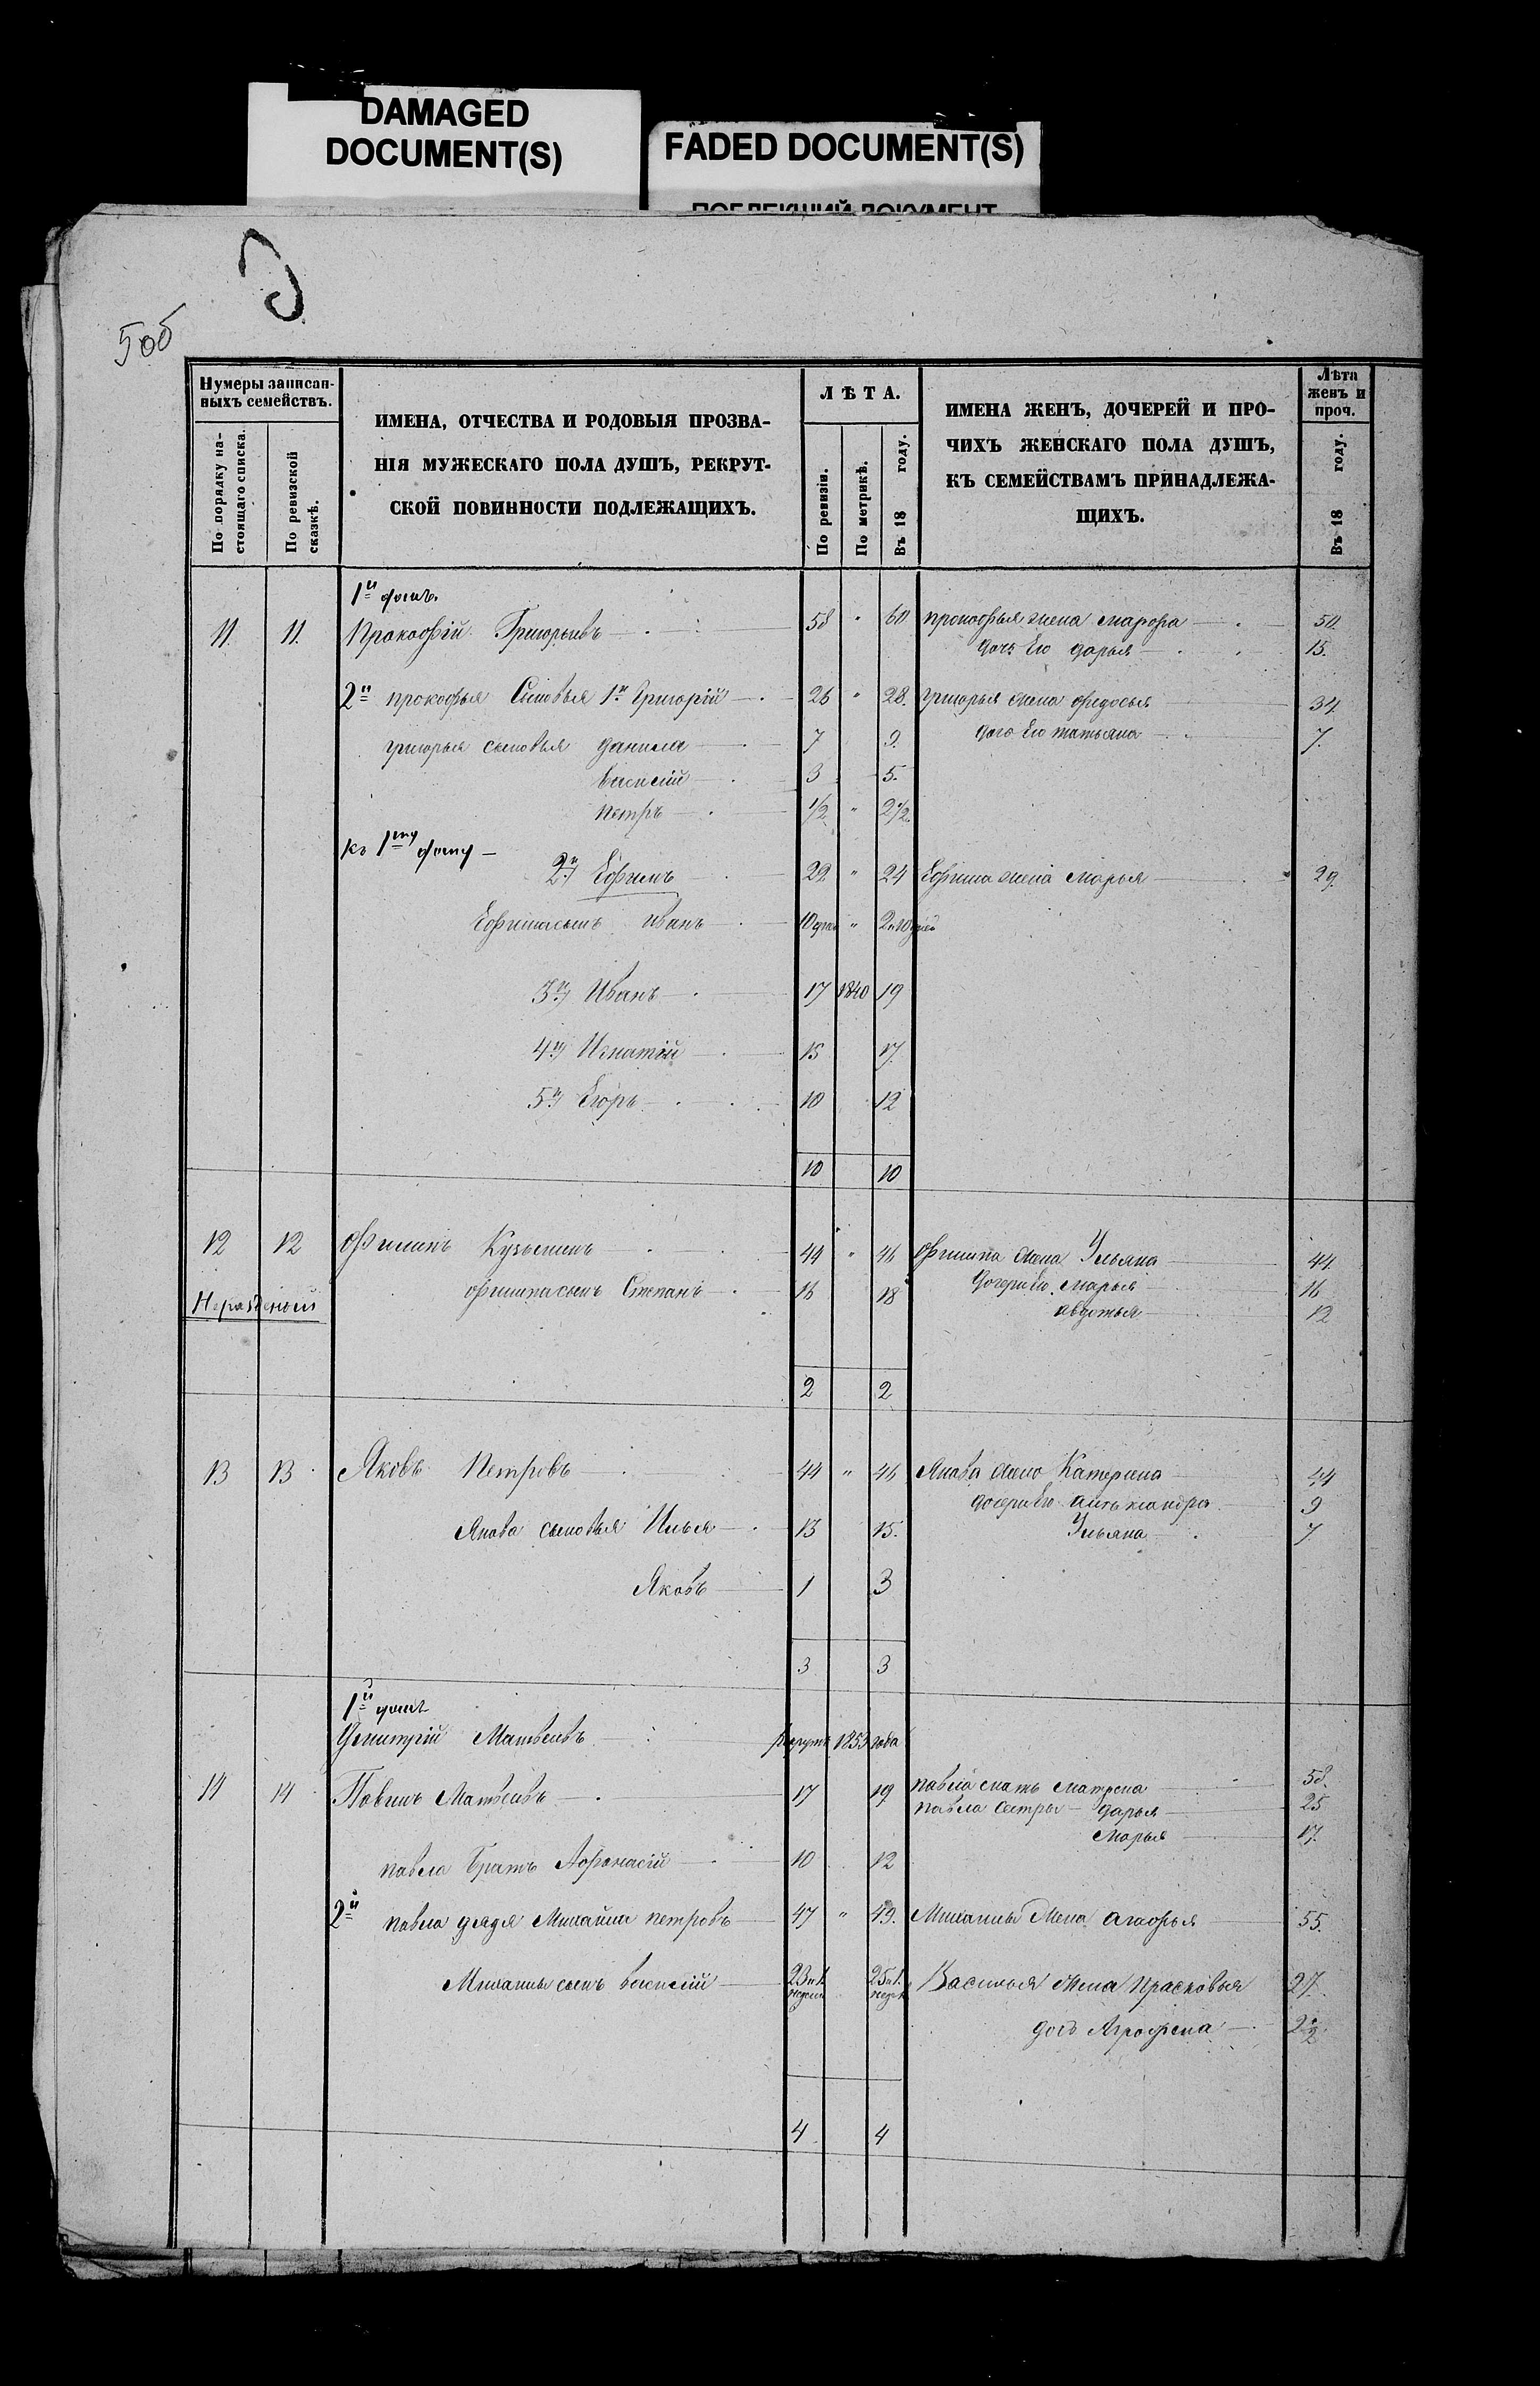 DAMAGED
DOCUMENT(S)
FADED DOCUMENT(S)
ПОБЛЕКШИЙ ДОКУМЕНТ
50б
Нумеры записан-
ныхъ семействъ.
По порядку на-
стоящаго списка.
По ревизской
сказкѣ.
ИМЕНА, ОТЧЕСТВА И РОДОВЫЯ ПРОЗВА-
НІЯ МУЖЕСКАГО ПОЛА ДУШЪ, РЕКРУТ-
СКОЙ ПОВИННОСТИ ПОДЛЕЖАЩИХЪ.
ЛѢТА.
По ревизіи.
По метрикѣ.
Въ 18 году.
ИМЕНА ЖЕНЪ, ДОЧЕРЕЙ И ПРО-
ЧИХЪ ЖЕНСКАГО ПОЛА ДУШЪ,
КЪ СЕМЕЙСТВАМЪ ПРИНАДЛЕЖА-
ЩИХЪ.
Лѣта
женъ и
проч.
Въ 18 году.
1й домъ
11. 11. Прокофій Григорьевъ 58 " 60 прокофья жена марфа 50.
дочь Его дарья 15.
2й прокофья Сыновья 1й Григорій 26 " 28. григорья жена федосья 34
григорья сыновья данила 7 9. дочь Его татьяна 7.
василій 3 5.
петръ 1/2 " 2 1/2.
къ 1му дому
2й Ефимъ 22 " 24 Ефима жена марья 29.
Ефима сынъ иванъ 10 дней " 2 и 10 дней
3й Иванъ 17 1840 19
4й Игнатій 15 17.
5й Егоръ 10 12
10 10
12 12 Филипъ Кузьминъ 44 " 46 филипа жена Ульяна 44
филипа сынъ Степанъ 16 18 дочери Его марья 16
авдотья 12
2 2
13 13 Яковъ Петровъ 44 " 46 Якова жена Катерина 44
дочери Его александра 9
Якова сыновья Илья 13 15. Ульяна 7
Яковъ 1 3
3 3
1й домъ
Дмитрій Матвеевъ рекрутъ 1853 года
14 14 Павелъ Матвеевъ 17 19 павла мать матрена 58.
павла сестры дарья 25
марья 17.
павла братъ Афанасій 10 12
2й павла дядя Михайла петровъ 47 " 49. Михайлы жена 55.
Михайлы сынъ василій 23 и 1 недели 25 и 1 недел Василья жена прасковья 27
дочь Аграфена 2 1/2
4 4